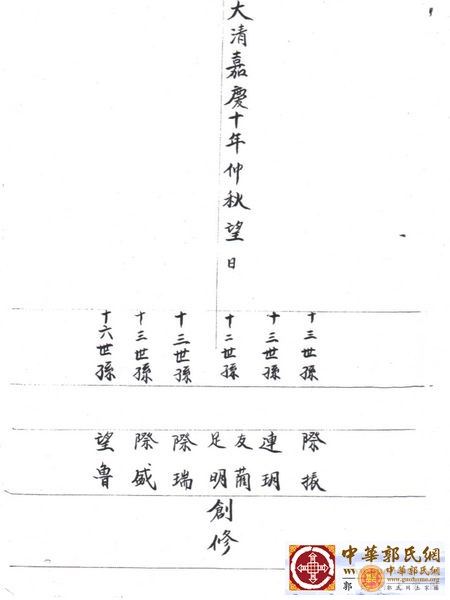 大清嘉慶十年仲秋望日
十三世孫 際振
十三世孫 連玥
十二世孫 友
足明
十三世孫 際瑞
十三世孫 際威
十六世孫 望魯
創修
中華郭氏網
中華郭氏網